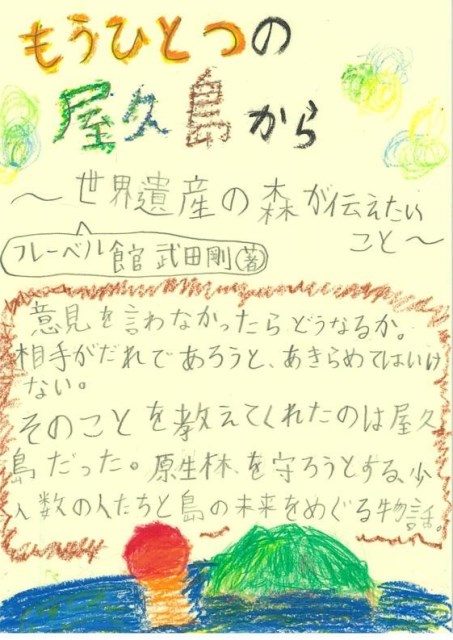 もうひとつの
屋久島から
～世界遺産の森が伝えたい
こと～
フレーベル館 武田剛著
意見を言わなかったらどうなるか。
相手がだれであろうと、あきらめてはいけ
ない。
そのことを教えてくれたのは屋久
島だった。原生林を守ろうとする、少
人数の人たちと島の未来をめぐる物話。